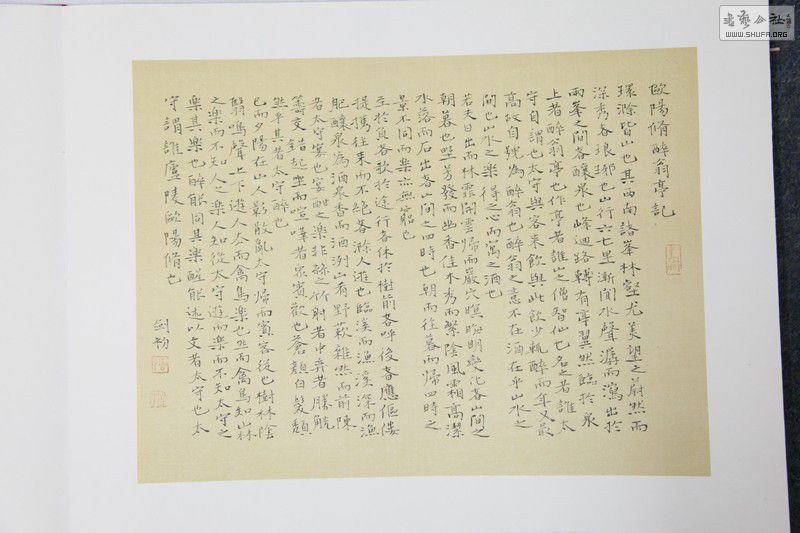 歐陽脩醉翁亭記
環滁皆山也其西南諸峯林壑尤美望之蔚然而
深秀者琅琊也山行六七里漸聞水聲潺而瀉出於
兩峯之間者釀泉也峰迴路轉有亭翼然臨於泉
上者醉翁亭也作亭者誰山之僧智仙也名之者誰太
守自謂也太守與客來飲與此飲少輒醉而年又最
高故自號為醉翁也醉翁之意不在酒在乎山水之
間也山水之樂得之心而寓之酒也
若夫日出而林霏開雲歸而巖穴暝晦明變化者山間之
朝暮也野芳發而幽香佳木秀而繁陰風霜高潔
水落而石出者山間之四時也朝而往暮而歸四時之
景不同而樂亦無窮也
至於負者歌於途行者休於樹前者呼後者應傴僂
提攜往來而不絕者滁人遊也臨溪而漁溪深而漁
肥釀泉為酒泉香而酒洌山肴野蔌雜然而前陳
者太守宴也宴酣之樂非絲非竹射者中弈者勝觥
籌交錯起坐而喧嘩者眾賓歡也蒼顏白髮頹
然乎其者太守醉也
已而夕陽在山人影散亂太守歸而賓客從也樹林陰
翳鳴聲上下遊人去而禽鳥樂也然而禽鳥知山林
之樂而不知人之樂人知從太守遊而樂而不知太守之
樂其樂也醉能同其樂醒能述以文者太守也太
守謂誰廬陵歐陽脩也
書藝公社
WWW.SHUFA.ORG